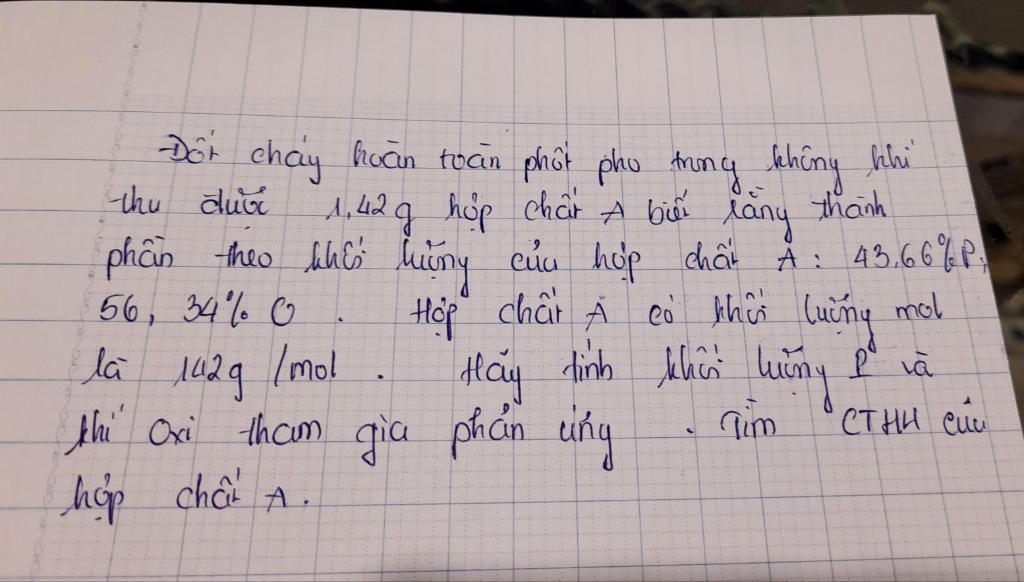 Đốt cháy hoàn toàn phốt pho trong không khí
thu được 1,42g hợp chất A biết rằng thành
phần theo khối lượng của hợp chất A: 43,66%P;
56,34% O. Hợp chất A có khối lượng mol
là 142g/mol. Hãy tính khối lượng P và
khí oxi tham gia phản ứng. Tìm CTHH của
hợp chất A.